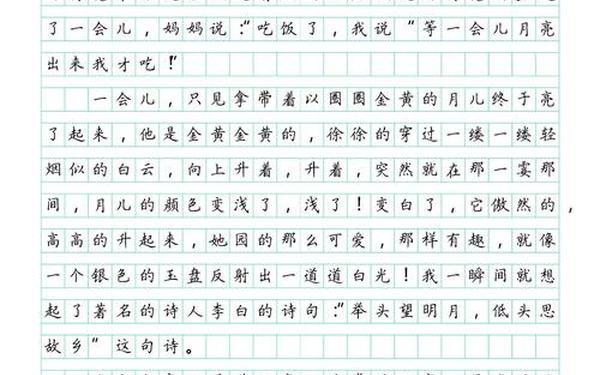 了一会儿，妈妈说：“吃饭了，我说“等一会儿月亮
出来我才吃！”
一会儿，只见拿带着以圈圈金黄的月儿终于亮
了起来，他是金黄金黄的，徐徐的穿过一缕一缕轻
烟似的白云，向上升着，升着，突然就在那一霎那
间，月儿的颜色变浅了，浅了！变白了，它傲然的，
高高的升起来，她园的那么可爱，那样有趣，就像
一个银色的玉盘反射出一道道白光！我一瞬间就想
起了著名的诗人李白的诗句：“举头望明月，低头思
故乡”这句诗。